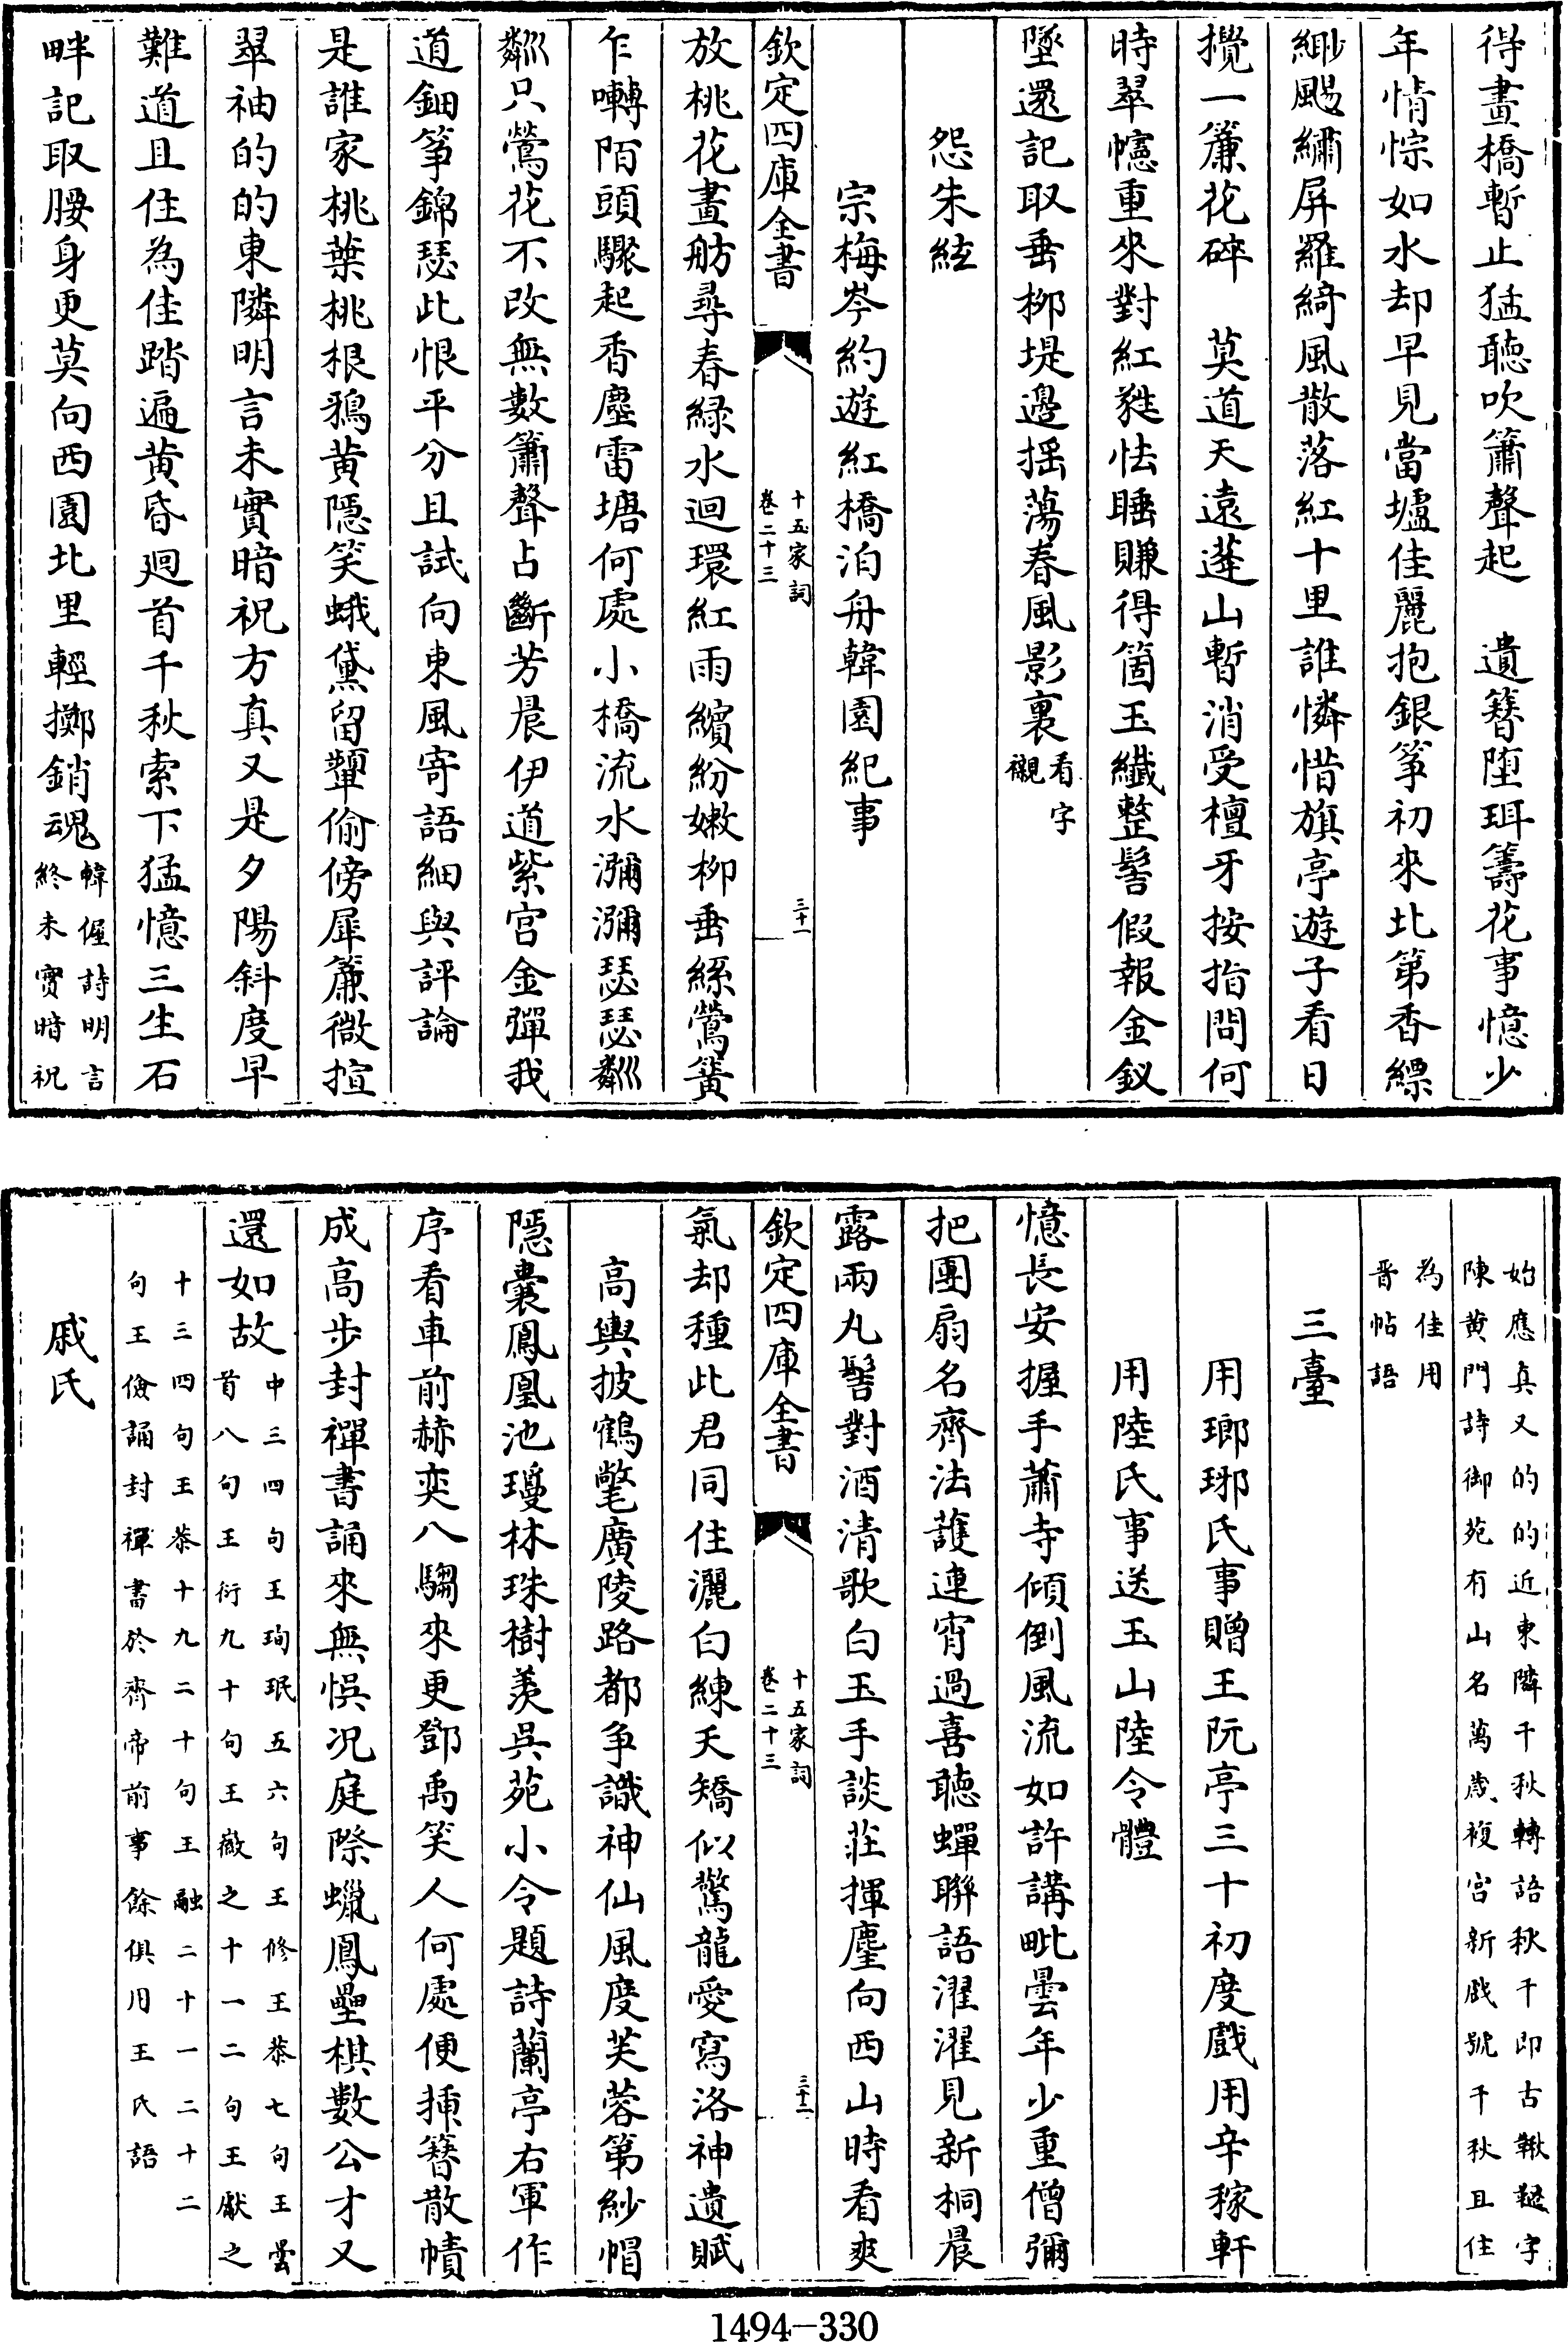 得畫橋暫止猛聽吹簫聲起　遺簪墮珥籌花事憶少
年情悰如水却早見當壚佳麗抱銀筝初來北第香縹
緲颺繡屏羅綺風散落紅十里誰憐惜旗亭遊子看日
攪一簾花碎　莫道天遠蓬山暫消受檀牙按指問何
時翠幰重來對紅蕤怯睡賺得箇玉纖整髻假報金釵
墜還記取垂柳堤邊揺蕩春風影裏看字
襯
怨朱絃
宗梅岑約遊紅橋泊舟韓園紀事
欽定四庫全書
十五家詞
卷二十三
三十一
放桃花畫舫尋春綠水迴環紅雨繽紛嫩柳垂絲鶯簧
乍囀陌頭驟起香塵雷塘何處小橋流水瀰瀰瑟瑟粼
粼只鶯花不改無數簫聲占斷芳晨伊道紫宫金彈我
道鈿筝錦瑟此恨平分且試向東風寄語細與評論
是誰家桃葉桃根鴉黃隱笑蛾黛留顰偷傍犀簾微揎
翠袖的的東隣明言未實暗祝方真又是夕陽斜度早
難道且住為佳踏遍黄昏迴首千秋索下猛憶三生石
畔記取腰身更莫向西園北里輕擲銷魂韓偓詩明言
終未實暗祝
始應真又的的近東隣千秋轉語秋千即古鞦韆字
陳黄門詩御苑有山名萬歲複宫新戯號千秋且住
為佳用
晉帖語
三臺
用瑯琊氏事贈王阮亭三十初度戲用辛稼軒
用陸氏事送玉山陸令體
憶長安握手蕭寺傾倒風流如許講毗曇年少重僧彌
把團扇名齊法護連宵過喜聽蟬聯語濯濯見新桐晨
露兩丸髻對酒清歌白玉手談莊揮麈向西山時看爽
欽定四庫全書
十五家詞
卷二十三
三十二
氣却種此君同住灑白練天矯似驚龍愛寫洛神遺賦
高輿披鶴氅廣陵路都争識神仙風度芙蓉第紗帽
隱囊鳳凰池瓊林珠樹羨吳苑小令題詩蘭亭右軍作
序看車前赫奕八騶來更鄧禹笑人何處便揷簪散幘
成高步封禪書誦來無悞况庭際蠟鳳壘棋數公才又
還如故中三四句王珣珉五六句王修王恭七句王曇
首八句王衍九十句王徽之十一二句王獻之
十三四句王恭十九二十句王融二十一二十二
句王儉誦封禪書於齊帝前事餘俱用王氏語
戚氏
1494-330